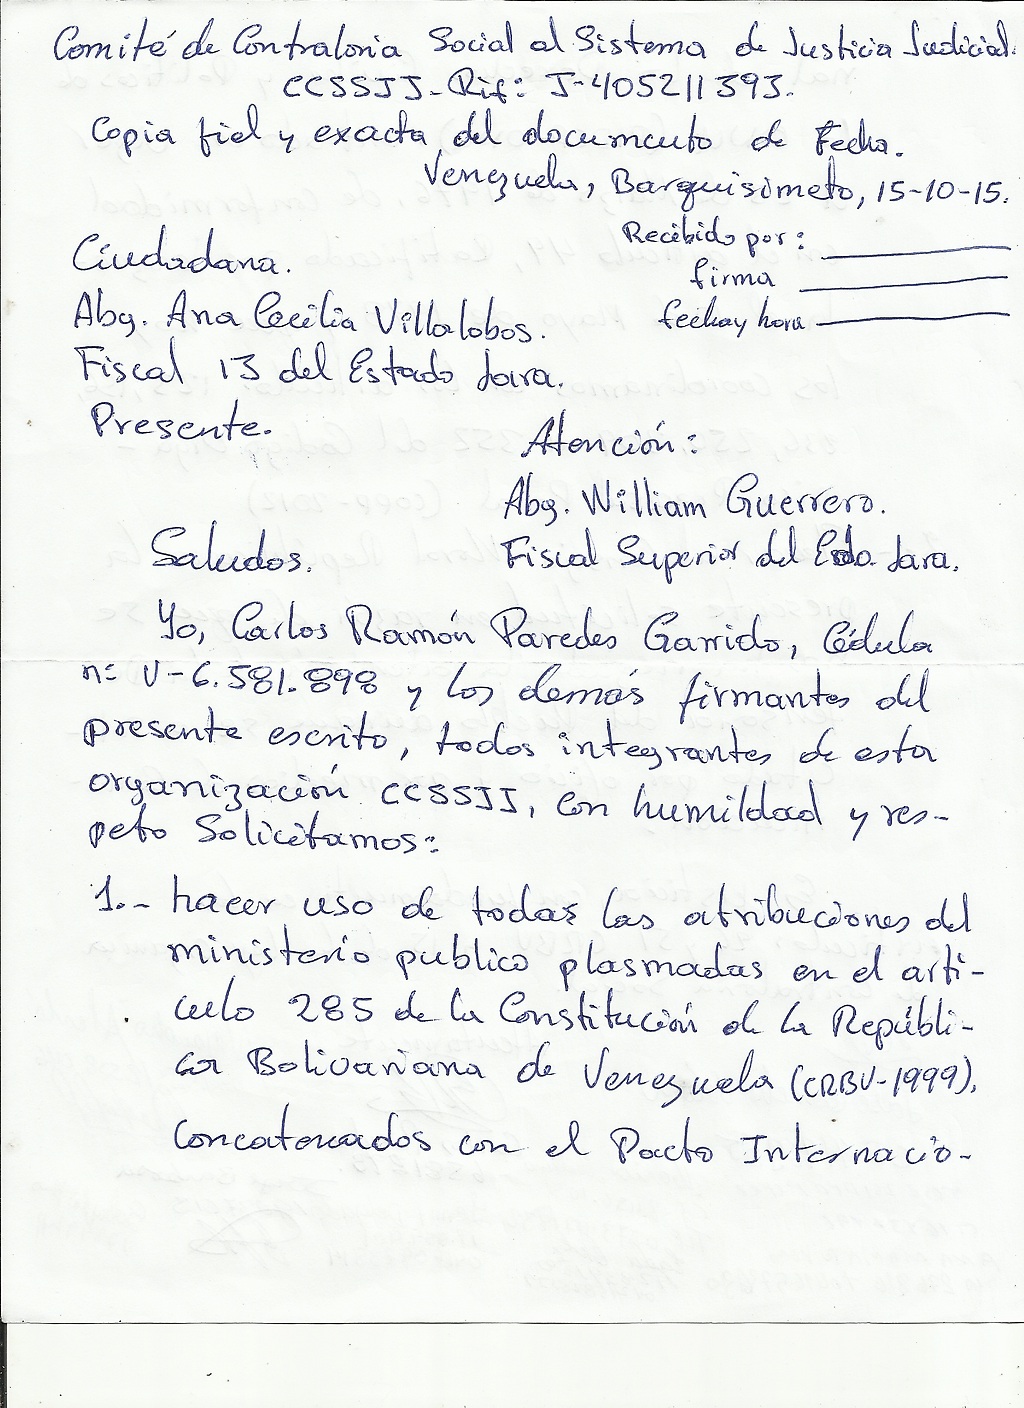 Comité de Contraloria Social al Sistema de Justicia Judicial.
CCSSJJ-Rif: J-405211393.
Copia fiel y exacta del documento de Fecha.
Venezuela, Barquisimeto, 15-10-15.
Recibido por:
firma
fecha y hora
Ciudadana.
Abg. Ana Cecilia Villalobos.
Fiscal 13 del Estado Lara.
Presente.
Atención:
Abg. William Guerrero.
Fiscal Superior del Edo. Lara.
Saludos.
Yo, Carlos Ramón Paredes Garrido, Cédula
n: V-6.581.898 y los demás firmantes del
presente escrito, todos integrantes de esta
organización CCSSJJ, con humildad y res-
peto Solicitamos:
1.- hacer uso de todas las atribuciones del
ministerio publico plasmadas en el arti-
culo 285 de la Constitución de la Repúbli-
ca Bolivariana de Venezuela (CRBV-1999).
Concatenados con el Pacto Internacio-